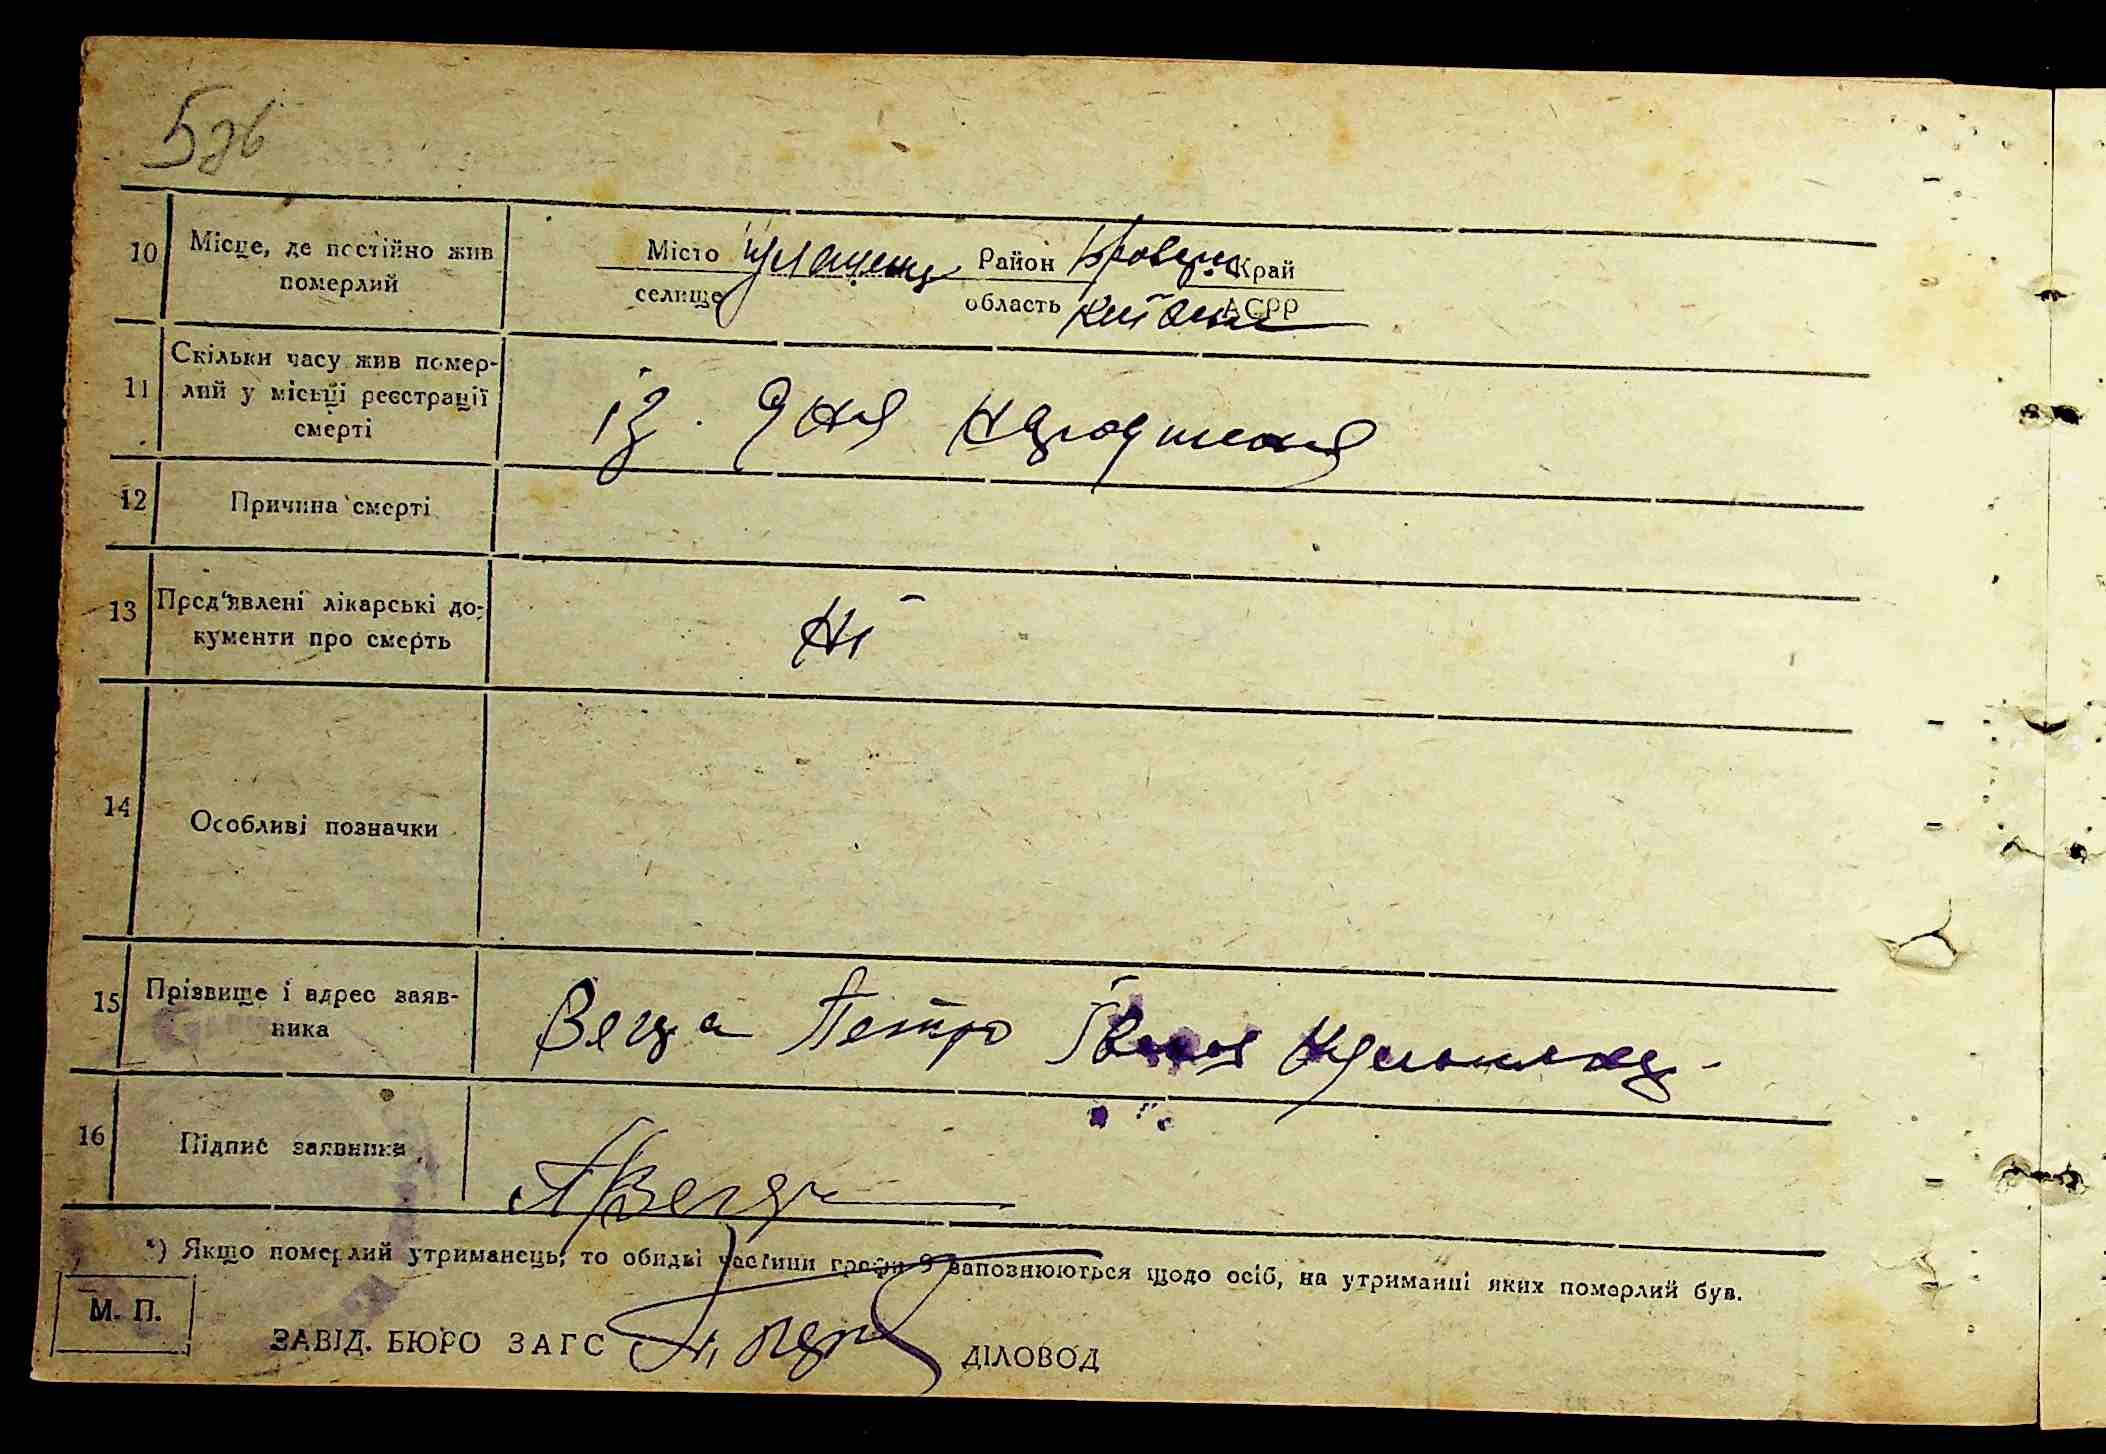 10 Місце, де постійно жив
померлий
Місто Район Бровари Край
селище область Київська АСРР
11 Скільки часу жив помер-
лий у місьці реєстрації
смерті
із дня народження
12 Причина смерті
13 Пред'явлені лікарські до-
кументи про смерть
Ні
14 Особливі позначки
15 Прізвище і адрес заяв-
ника
Петро
16 Підпис заявника
*) Якщо померлий утриманець, то обидві частини графи 9 запознюються щодо осіб, на утриманні яких померлий був.
М. П.
ЗАВІД. БЮРО ЗАГС ДІЛОВОД